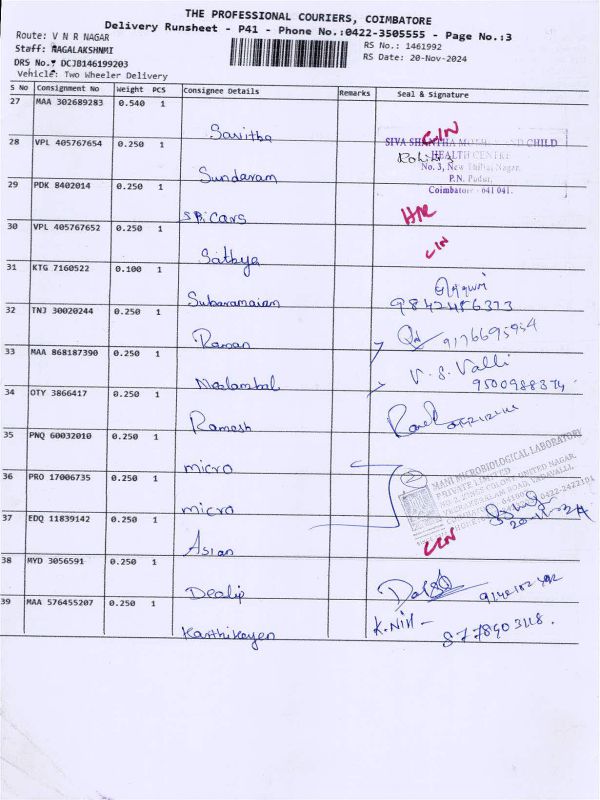 THE PROFESSIONAL COURIERS, COIMBATORE
Delivery Runsheet - P41 - Phone No.:0422-3505555 - Page No.:3
Route: V N R NAGAR
Staff: NAGALAKSHNMI
DRS No.: DCJB146199203
Vehicle: Two Wheeler Delivery
RS No.: 1461992
RS Date: 20-Nov-2024
S No Consignment No Weight PCS Consignee Details Remarks Seal & Signature
27 MAA 302689283 0.540 1 Savitha
28 VPL 405767654 0.250 1 Sundaram
SIVA SHANTHA MOTHER AND CHILD
HEALTH CENTRE
No. 3, New Thillai Nagar,
P.N. Pudur,
Coimbatore - 641 041.
29 PDK 8402014 0.250 1 SB. Cars
30 VPL 405767652 0.250 1 Sathya
31 KTG 7160522 0.100 1 Subaramaian
32 TNJ 30020244 0.250 1 Raman
33 MAA 868187390 0.250 1 V. S. Valli
34 OTY 3866417 0.250 1 Ramesh
35 PNQ 60032010 0.250 1 micro
MANI MICROBIOLOGICAL LABORATORY
PRIVATE LIMITED
36 PRO 17006735 0.250 1 micro
37 EDQ 11839142 0.250 1 Asian
38 MYD 3056591 0.250 1 Dealip
39 MAA 576455207 0.250 1 Karthikeyen